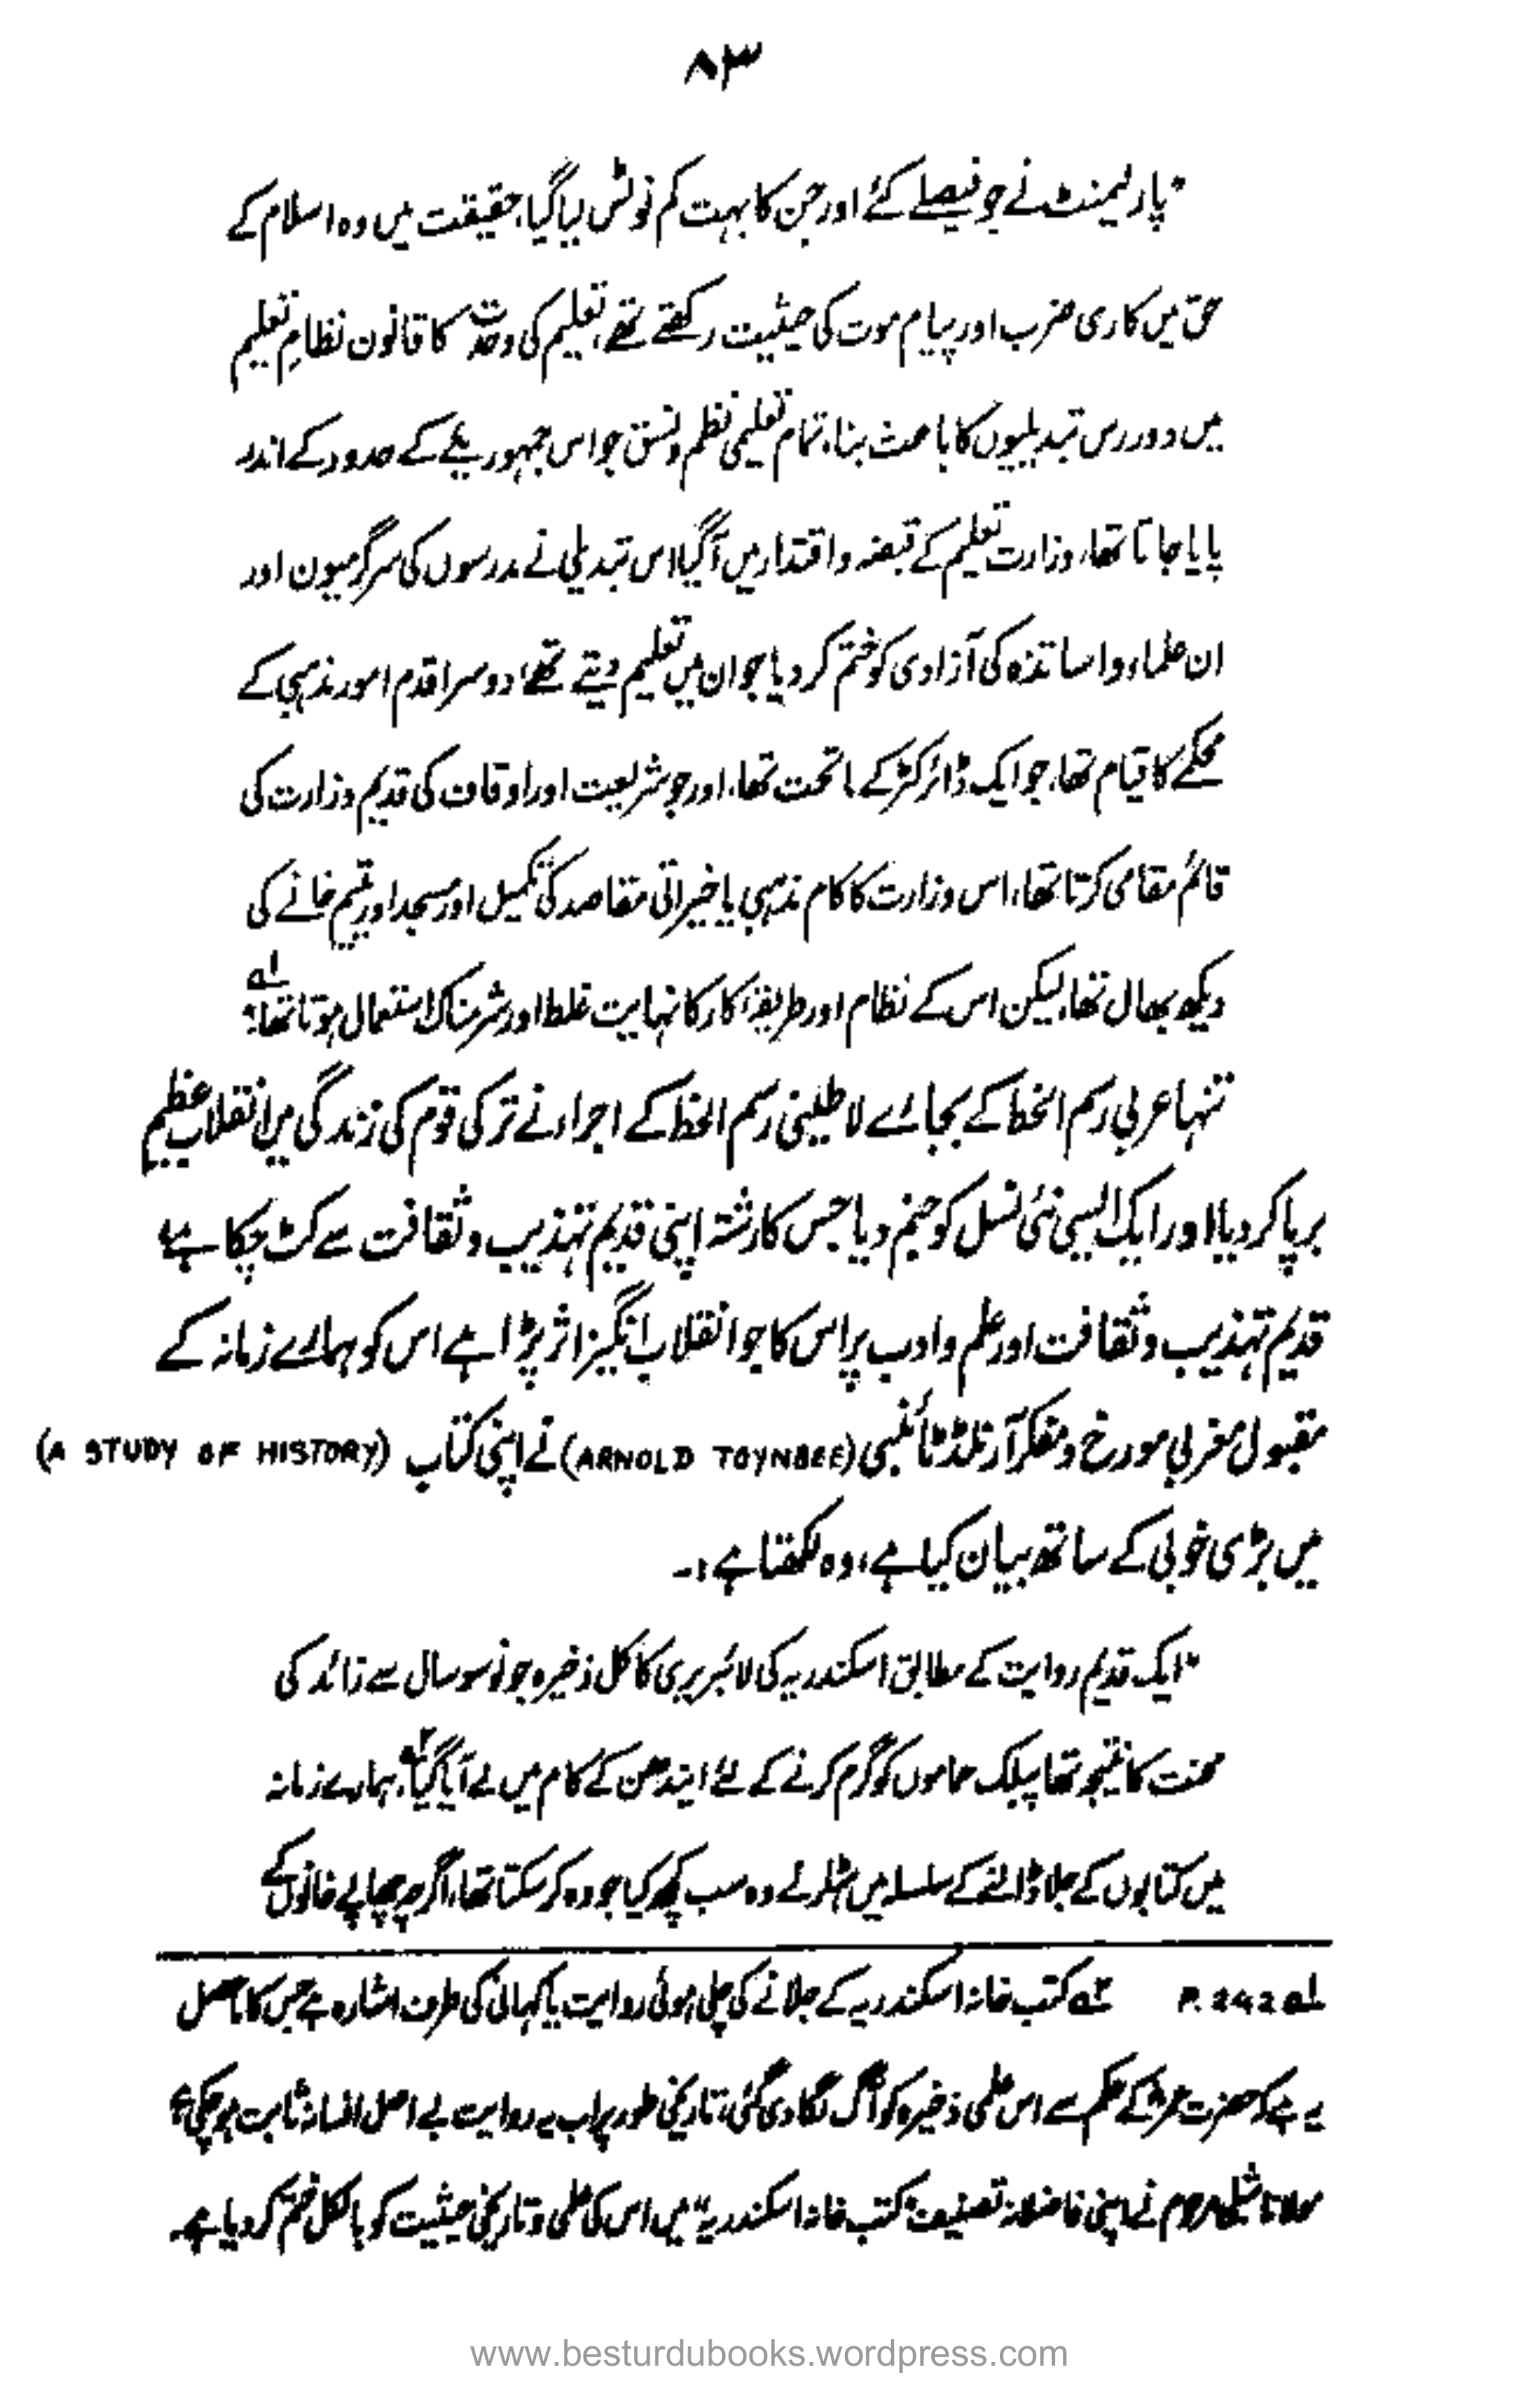 ۸۳
"پارلیمنٹ نے جو فیصلے کئے اور جن کا بہت کم نوٹس لیا گیا، حقیقت میں وہ اسلام کے
حق میں کاری ضرب اور پیام موت کی حیثیت رکھتے تھے، تعلیم کی وحدت کا قانون نظامِ تعلیم
میں دور رس تبدیلیوں کا باعث بنا، تمام تعلیمی نظم و نسق جو اس جمہوریئے کے حدود کے اندر
پایا جاتا تھا، وزارت تعلیم کے قبضہ و اقتدار میں آ گیا، اس تبدیلی نے مدرسوں کی سرگرمیوں اور
ان علماء و اساتذہ کی آزادی کو ختم کر دیا جو ان میں تعلیم دیتے تھے، دوسرا قدم امور مذہبی کے
محکمے کا قیام تھا، جو ایک ڈائرکٹر کے ماتحت تھا، اور جو شریعت اور اوقاف کی قدیم وزارت کی
قائم مقامی کرتا تھا، اس وزارت کا کام مذہبی یا خیراتی مقاصد کی تکمیل اور مسجد اور یتیم خانے کی
دیکھ بھال تھا، لیکن اس کے نظام اور طریقۂ کار کا نہایت غلط اور شرمناک استعمال ہوتا تھا" ۱؎
تنہا عربی رسم الخط کے بجائے لاطینی رسم الخط کے اجراء نے ترکی قوم کی زندگی میں انقلاب عظیم
برپا کر دیا، اور ایک ایسی نئی نسل کو جنم دیا جس کا رشتہ اپنی قدیم تہذیب و ثقافت سے کٹ چکا ہے،
قدیم تہذیب و ثقافت اور علم و ادب پر اس کا جو انقلاب انگیز اثر پڑا ہے اس کو ہمارے زمانہ کے
مقبول مغربی مورخ و مفکر آرنلڈ ٹائنبی (ARNOLD TOYNBEE) نے اپنی کتاب (A STUDY OF HISTORY)
میں بڑی خوبی کے ساتھ بیان کیا ہے، وہ لکھتا ہے:۔
"ایک قدیم روایت کے مطابق اسکندریہ کی لائبریری کا کل ذخیرہ جو نو سو سال سے زائد کی
محنت کا نتیجہ تھا پبلک حماموں کو گرم کرنے کے لئے ایندھن کے کام میں لے آیا گیا ۲؎، ہمارے زمانہ
میں کتابوں کے جلا ڈالنے کے سلسلہ میں ہٹلر نے وہ سب کچھ کیا جو وہ کر سکتا تھا، اگرچہ چھاپے خانوں کے
۱؎ P. 242 ۲؎ کتب خانہ اسکندریہ کے جلانے کی چلی ہوئی روایت یا کہانی کی طرف اشارہ ہے جس کا حاصل
یہ ہے کہ حضرت عمرؓ کے حکم سے اس علمی ذخیرہ کو آگ لگا دی گئی، تاریخی طور پر اب یہ روایت بے اصل افسانہ ثابت ہو چکی ہے،
مولانا شبلی مرحوم نے اپنی فاضلانہ تصنیف "کتب خانہ اسکندریہ" میں اس کی علمی و تاریخی حیثیت کو بالکل ختم کر دیا ہے۔
www.besturdubooks.wordpress.com